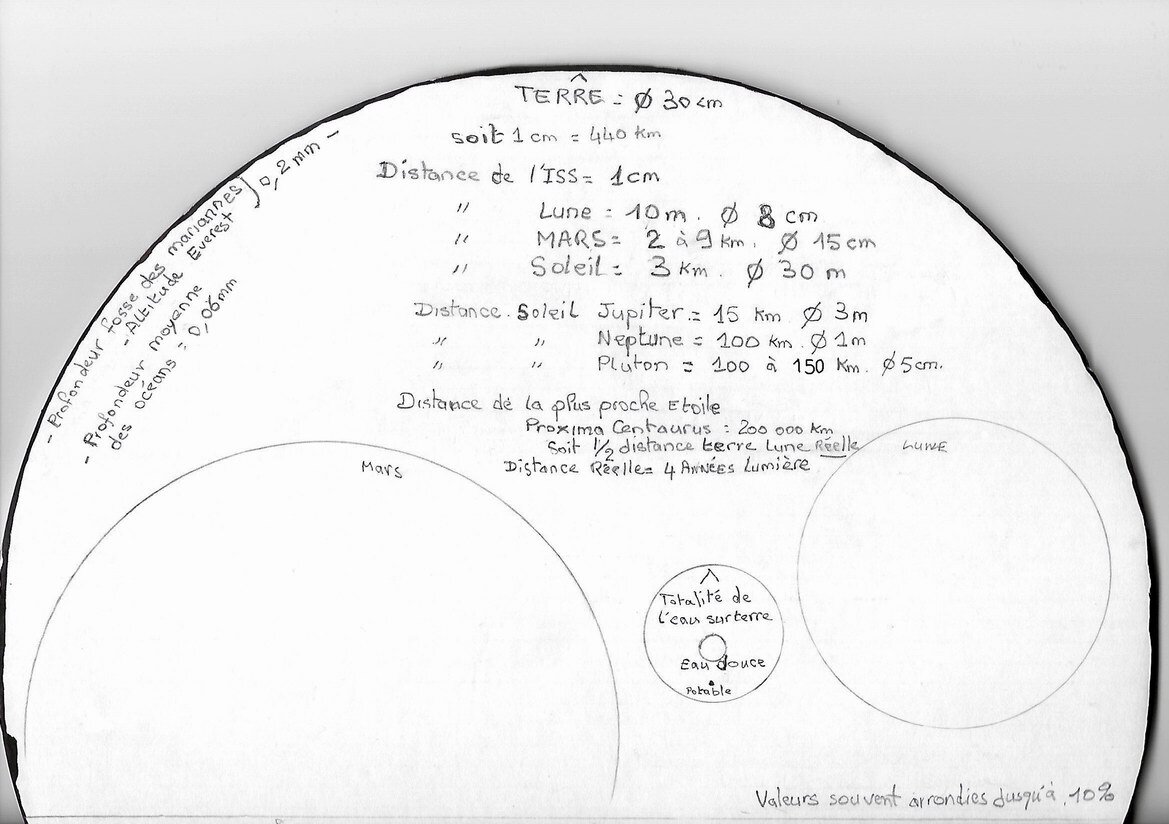 TERRE = Ø 30 cm
soit 1 cm = 440 km
Distance de l'ISS = 1cm
" Lune = 10 m. Ø 8 cm
" MARS = 2 à 9 km. Ø 15 cm
" Soleil = 3 Km. Ø 30 m
Distance. Soleil Jupiter = 15 km Ø 3m
" " Neptune = 100 km. Ø 1m
" " Pluton = 100 à 150 Km. Ø 5cm.
Distance de la plus proche Etoile
Proxima Centaurus : 200 000 Km
Soit 1/2 distance terre Lune Réelle
Distance Réelle = 4 Années Lumière
- Profondeur fosse des mariannes
- Altitude Everest
} 0,2 mm -
- Profondeur moyenne
des océans = 0,06mm
Mars
LUNE
Totalité de
l'eau sur terre
Eau douce
Potable
Valeurs souvent arrondies jusqu'à 10%